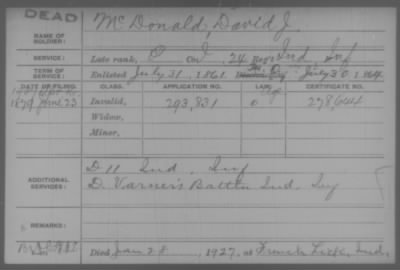 DEAD
McDonald, David J.
NAME OF
SOLDIER:
SERVICE:
Late rank, Co. I, 24 Reg't Ind. Inf
TERM OF
SERVICE:
Enlisted July 31, 1861. July 30, 1864.
DATE OF FILING. CLASS. APPLICATION NO. LAW. CERTIFICATE NO.
1879 June 23 Invalid, 293,831
Widow,
Minor,
D 11 Ind. Inf
ADDITIONAL
SERVICES:
D. Varner's Batt'n Ind. Inf
REMARKS:
Died Jan 28, 1927, at French Lick, Ind.